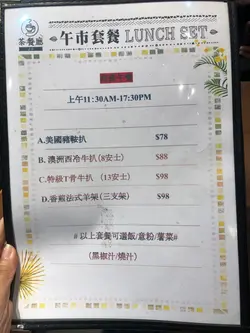 茶餐廳
午市套餐 LUNCH SET
上午11:30AM-17:30PM
A.美國豬鞍扒 $78
B.澳洲西冷牛扒(8安士) $88
C.特級T骨牛扒 (13安士) $98
D.香煎法式羊架(三支架) $98
#以上套餐可選飯/意粉/薯菜#
(黑椒汁/燒汁)